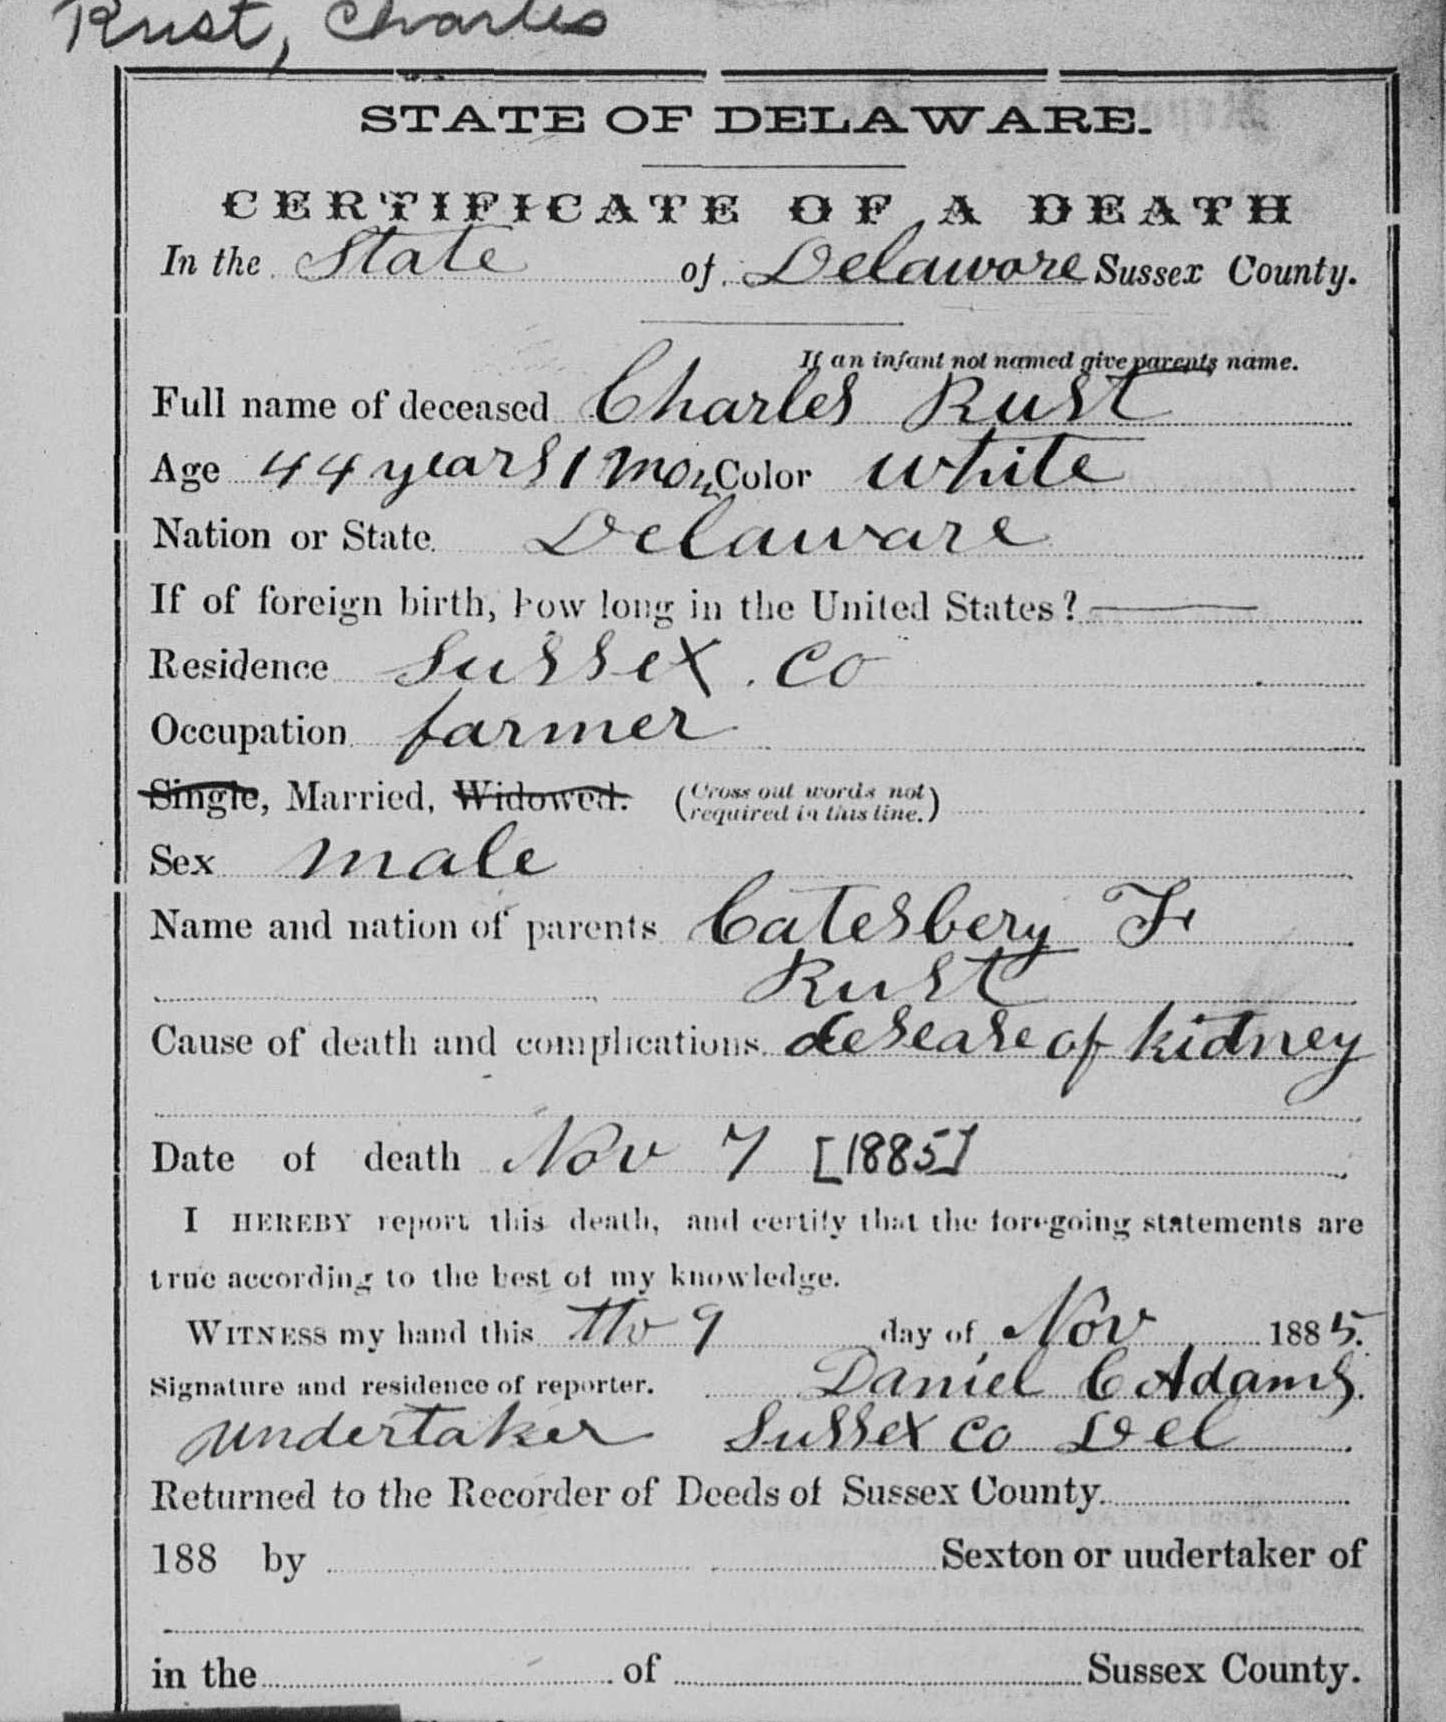 Rust, Charles
STATE OF DELAWARE.
CERTIFICATE OF A DEATH
In the State of Delaware Sussex County.
If an infant not named give parents name.
Full name of deceased Charles Rust
Age 44 years 1 Mon Color white
Nation or State. Delaware
If of foreign birth, how long in the United States?
Residence Sussex. Co
Occupation farmer
Single, Married, Widowed. (Cross out words not required in this line.)
Sex male
Name and nation of parents Catesbery F
Rust
Cause of death and complications. desease of kidney
Date of death Nov 7 [1885]
I HEREBY report this death, and certify that the foregoing statements are
true according to the best of my knowledge.
WITNESS my hand this 9 day of Nov 1885.
Signature and residence of reporter. Daniel C Adams
undertaker Sussex Co Del
Returned to the Recorder of Deeds of Sussex County.
188 by Sexton or undertaker of
in the of Sussex County.